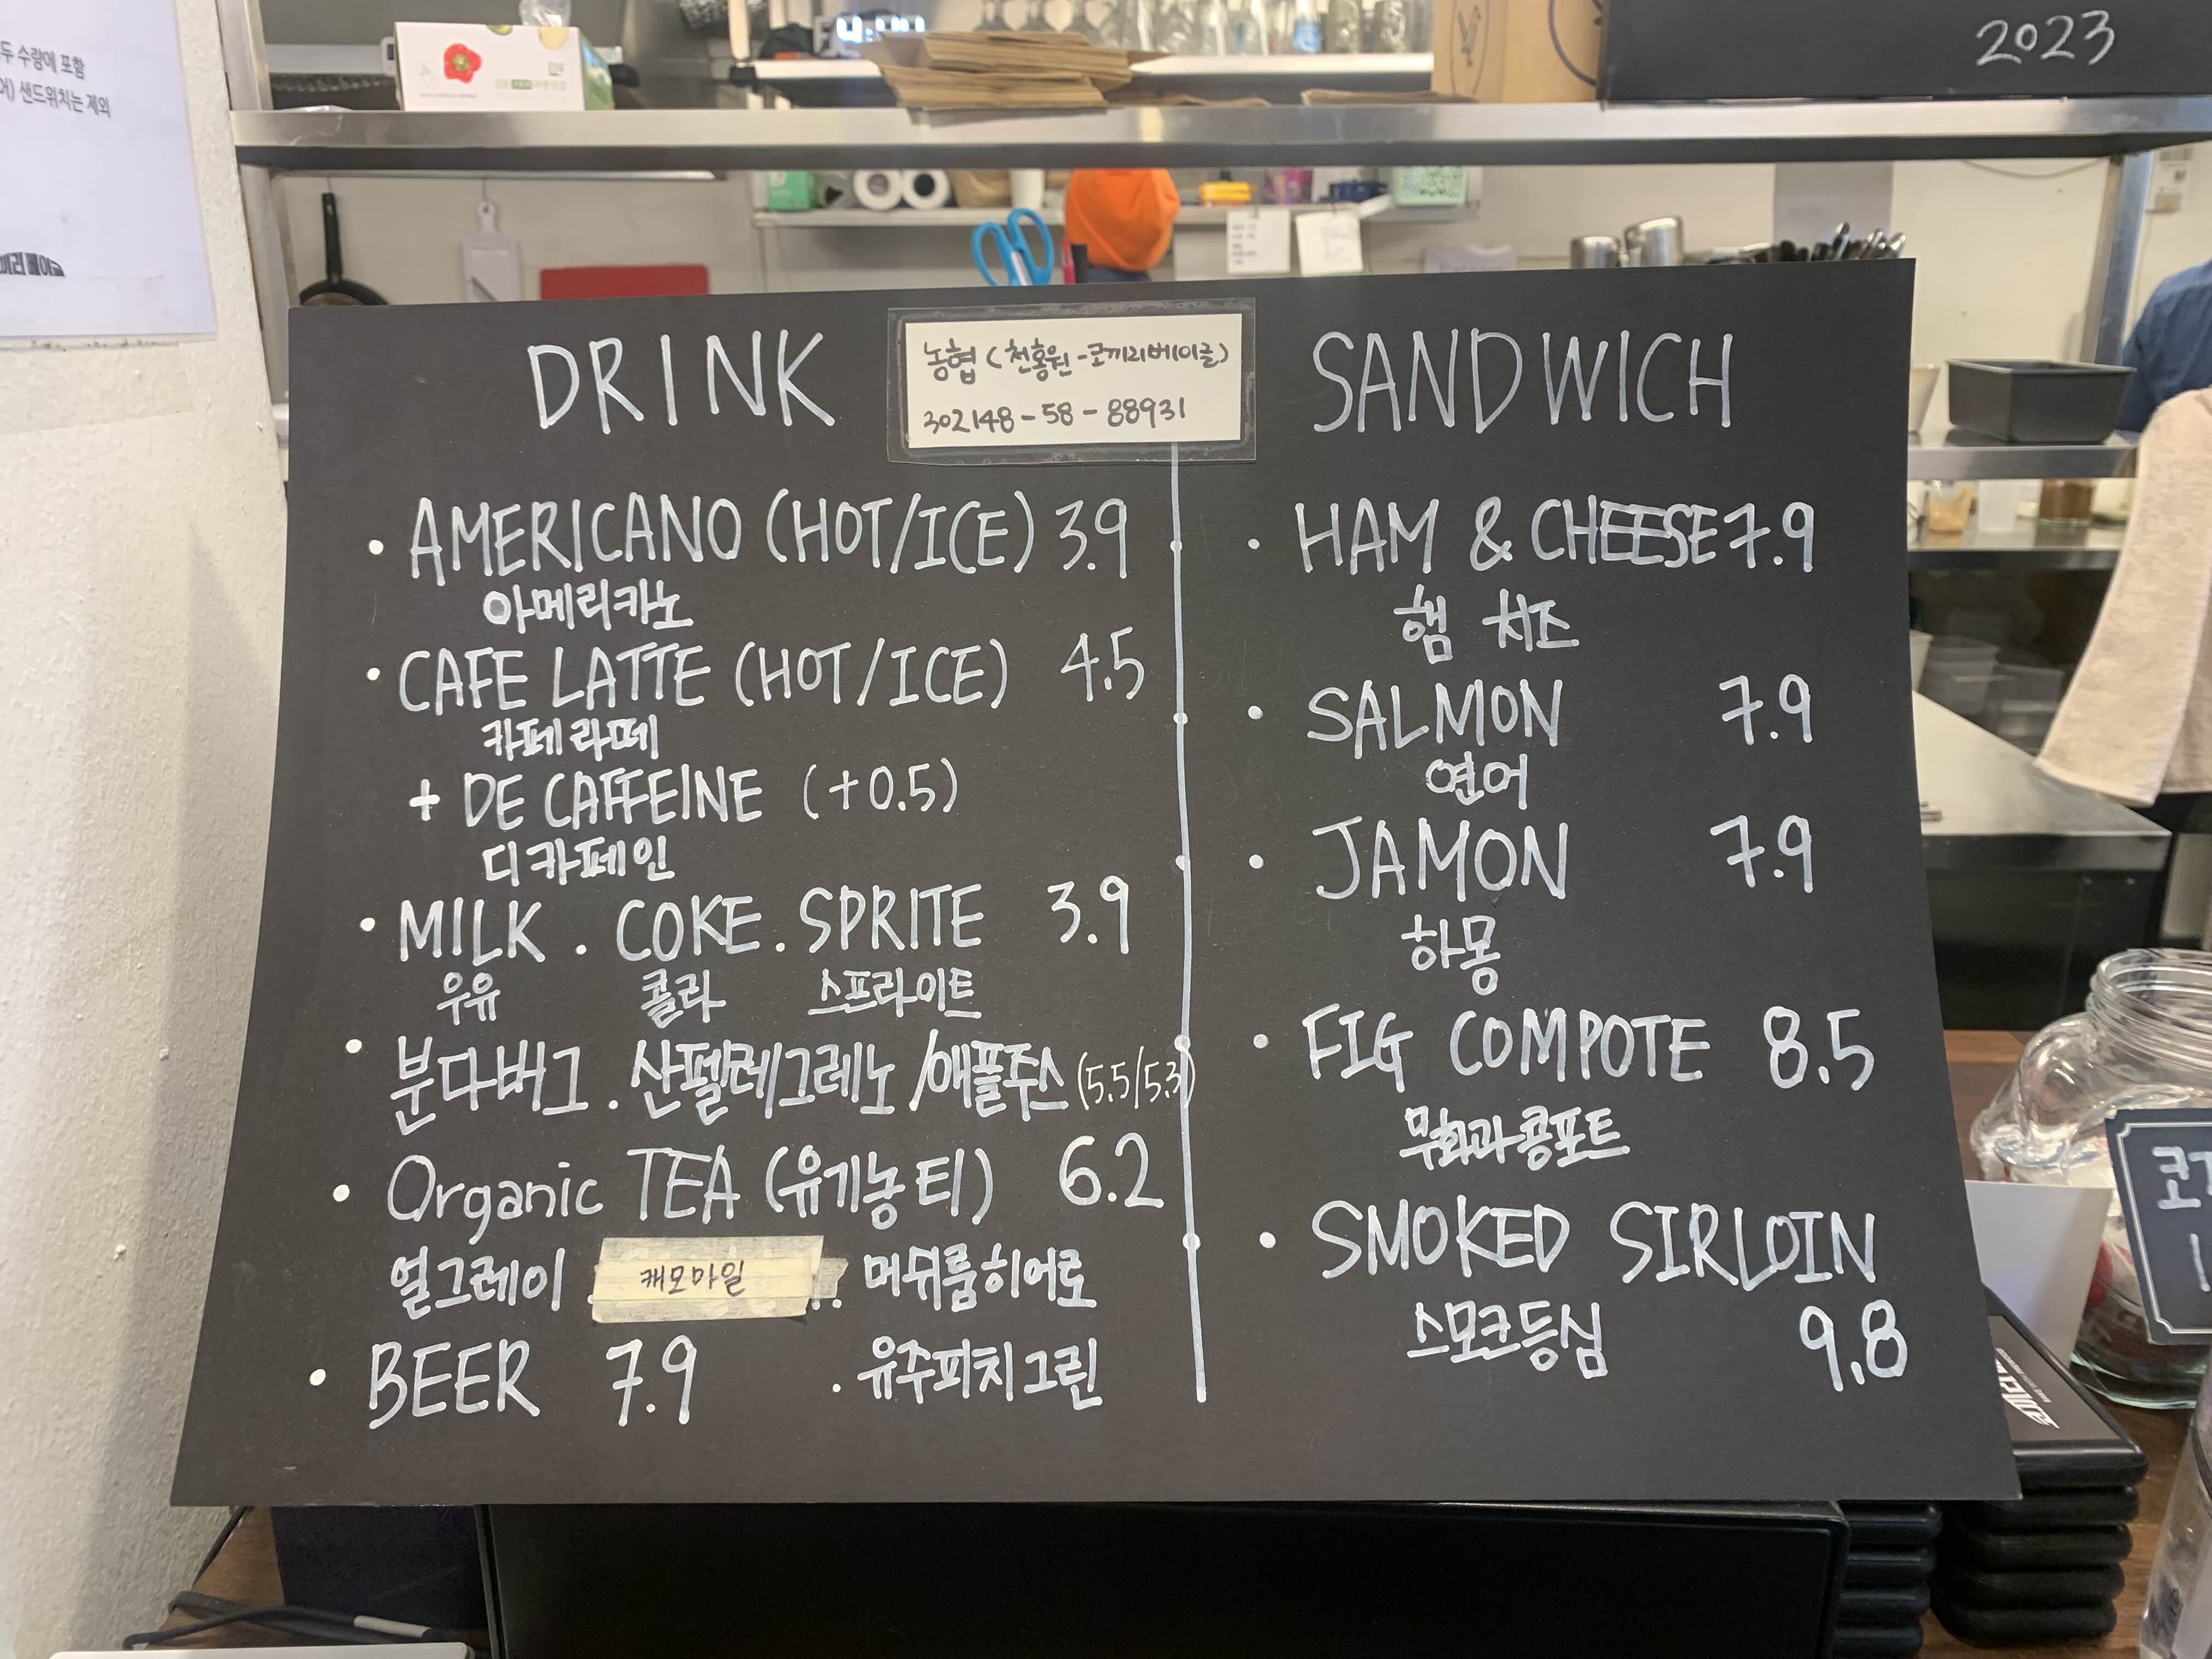 두 수량에 포함
어) 샌드위치는 제외
2023
농협 (천홍원-코끼리베이글)
302148-58-88931
DRINK
· AMERICANO (HOT/ICE) 3.9
아메리카노
· CAFE LATTE (HOT/ICE) 4.5
카페라떼
+ DE CAFFEINE (+0.5)
디카페인
· MILK . COKE . SPRITE 3.9
우유 콜라 스프라이트
· 분다버그 . 산펠레그레노 /애플주스 (5.5/5.3)
· Organic TEA (유기농티) 6.2
얼그레이 . 캐모마일 . 머쉬룸히어로
· BEER 7.9 . 유주피치그린
SANDWICH
· HAM & CHEESE 7.9
햄 치즈
· SALMON 7.9
연어
· JAMON 7.9
하몽
· FIG COMPOTE 8.5
무화과콩포트
· SMOKED SIRLOIN
스모크등심 9.8